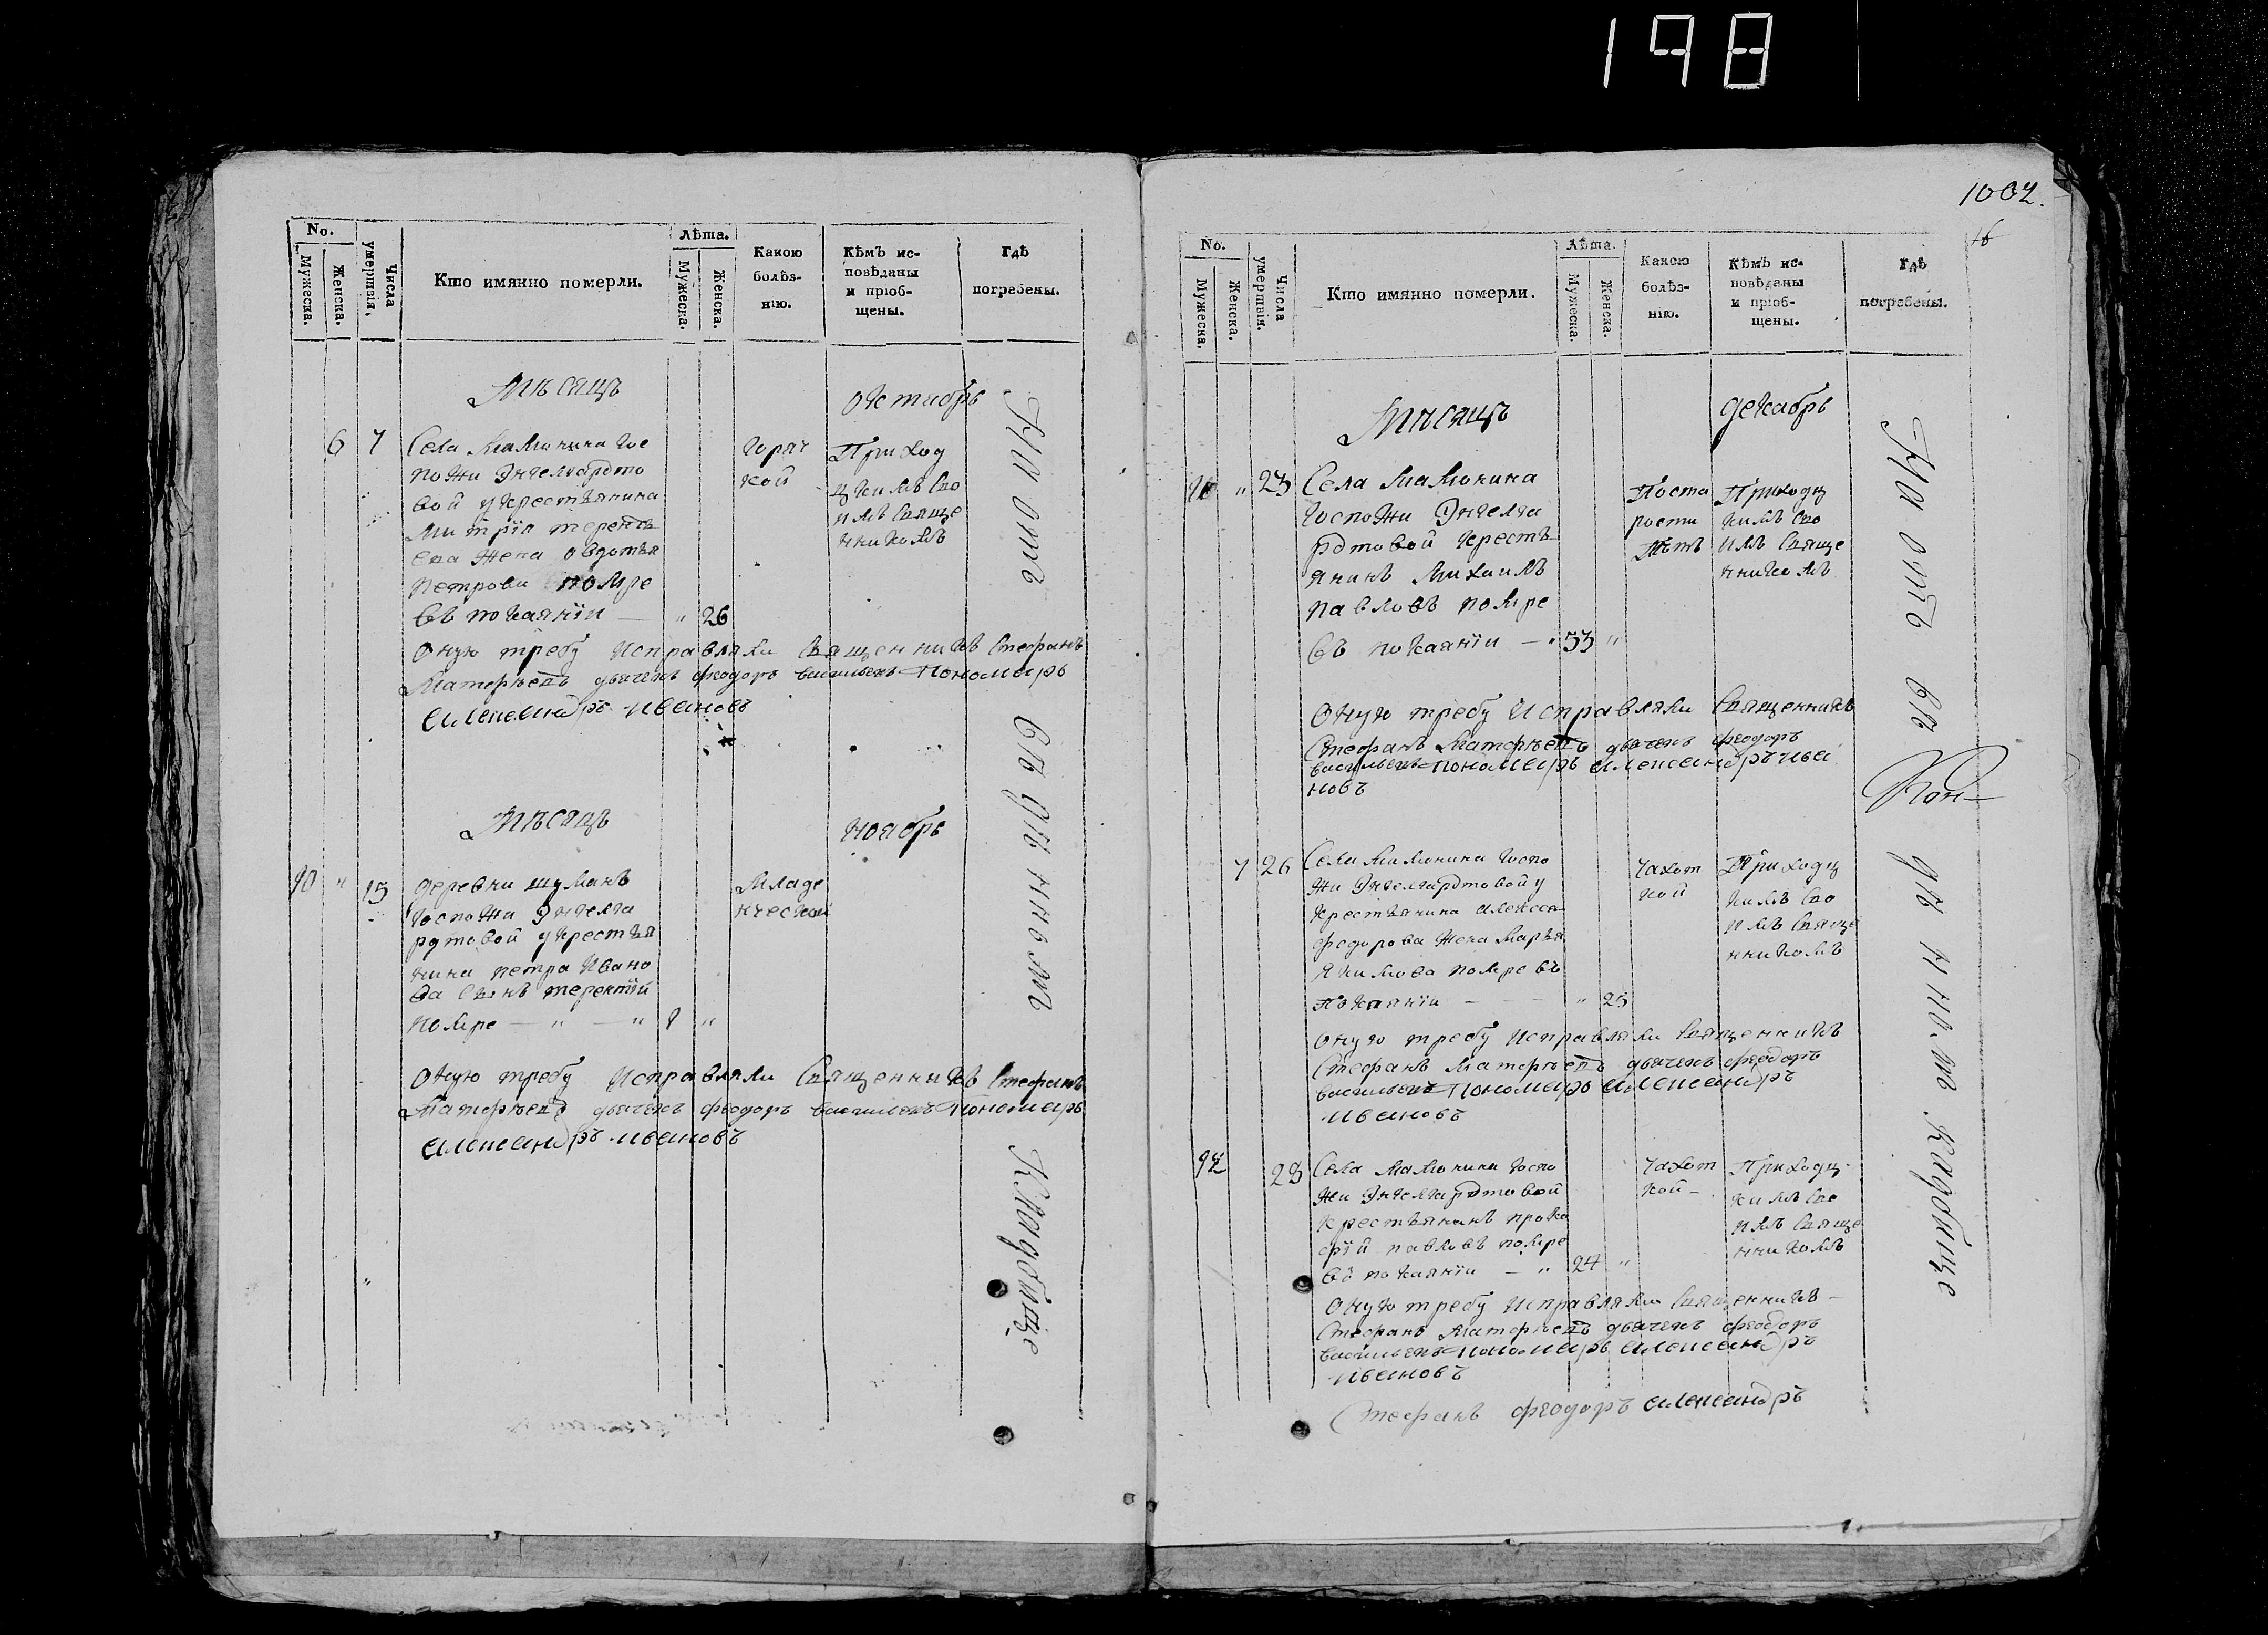 198
No.
Мужеска.
Женска.
Числа умертвія.
Кто имянно померли.
Лѣта.
Мужеска.
Женска.
Какою
болѣз-
нію.
Кѣмъ ис-
повѣданы
и пріоб-
щены.
Гдѣ
погребены.
Мѣсяцъ
октябрь
6 7 Села Мамонина гос
пожи Энгелгардто
вой у крестьянина
митрiя теренть
ева жена овдотья
петрова помре
въ покаянiи — " 26
горяч
кой
Приход
цкимъ сво
имъ свяще
нникомъ
Оную требу исправляли священникъ Стефанъ
Матфѣевъ дьячекъ феодоръ васильевъ пономарь
александръ ивановъ
Мѣсяцъ
ноябрь
10 " 15 деревни шуманъ
госпожи Энгелга
рдтовой у крестья
нина петра Ивано
ва сынъ терентiй
помре — " — " 1 "
Младе
нческой
Оную требу исправляли священникъ Стефанъ
Матфѣевъ дьячекъ феодоръ васильевъ пономарь
александръ ивановъ
На отъ
въ денномъ
кладбищѣ
1002.
16
No.
Мужеска.
Женска.
Числа умертвія.
Кто имянно померли.
Лѣта.
Мужеска.
Женска.
Какою
болѣз-
нію.
Кѣмъ ис-
повѣданы
и пріоб-
щены.
Гдѣ
погребены.
Мѣсяцъ
декабрь
11 " 23 Села Мамонина
госпожи Энгелга
рдтовой кресть
янинъ Михаилъ
павловъ помре
въ покаянiи — " 53 "
По ста
рости
лѣтъ
Приходц
кимъ сво
имъ свяще
нникомъ
Оную требу исправляли священникъ
Стефанъ Матфѣевъ дьячекъ феодоръ
васильевъ пономарь александръ ива
новъ
7 26 Села Мамонина госпо
жи Энгелгардтовой у
крестьянина алексея
федорова жена Марья
якимова помре въ
покаянiи — — " 25
чахот
кой
Приходц
кимъ сво
имъ свяще
нникомъ
Оную требу исправляли священникъ
Стефанъ Матфѣевъ дьячекъ феодоръ
васильевъ пономарь александръ
ивановъ
12 28 Села Мамонина госпо
жи Энгелгардтовой
крестьянинъ проко
фiй павловъ помре
въ покаянiи — " 24 "
чахот
кой —
Приходц
кимъ сво
имъ свяще
нникомъ
Оную требу исправляли священникъ
Стефанъ Матфѣевъ дьячекъ феодоръ
васильевъ пономарь александръ
ивановъ
На отъ въ
кладбище
Стефанъ феодоръ александръ